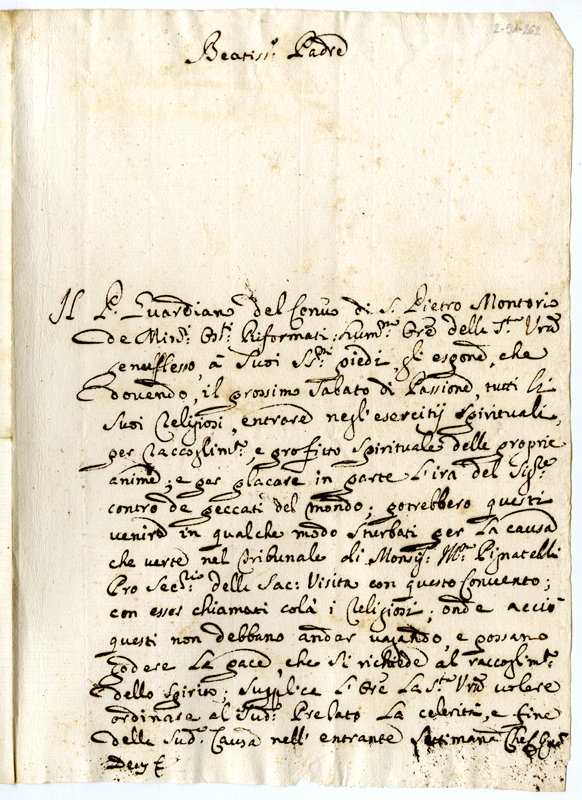 2-51-262
Beatiss.o Padre
Il P. Guardiano del Conv.o di S. Pietro Montorio
de Min.i Oss.ti Riformati: Hum.mo Ore della S.tà V.ra
genuflesso, à Suoi SS.mi piedi, gli espone, che
dovendo, il prossimo Sabato di Passione, tutti li
Suoi Religiosi, entrare negl'esercitij Spirituali,
per Raccoglim.to, e profitto Spirituale delle proprie
anime; e per placare in parte l'ira del Sig.re
contro de peccati del mondo; potrebbero questi
venire in qualche modo Sturbati per la causa
che verte nel Tribunale di Monsig.r Pignatelli
Pro Sec.rio della Sac: Visita con questo Convento;
con esser chiamati colà i Religiosi; onde acciò
questi non debbano andar vagando, e possano
godere la pace, che si richiede al raccoglim.to
dello Spirito; Supplica l'Ore la S.tà V.ra volere
ordinare al Sud.o Prelato la celerità, e fine
della Sud.a Causa nell'entrante Settimana Che